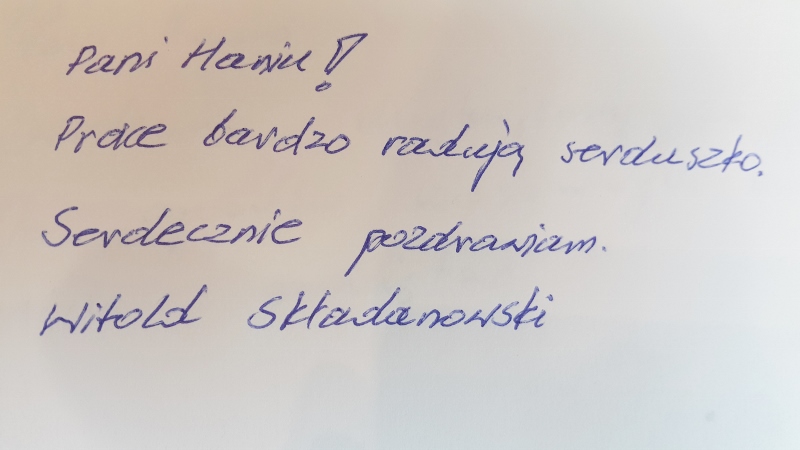 Pani Haniu!
Prace bardzo radują serduszko.
Serdecznie pozdrawiam.
Witold Składanowski